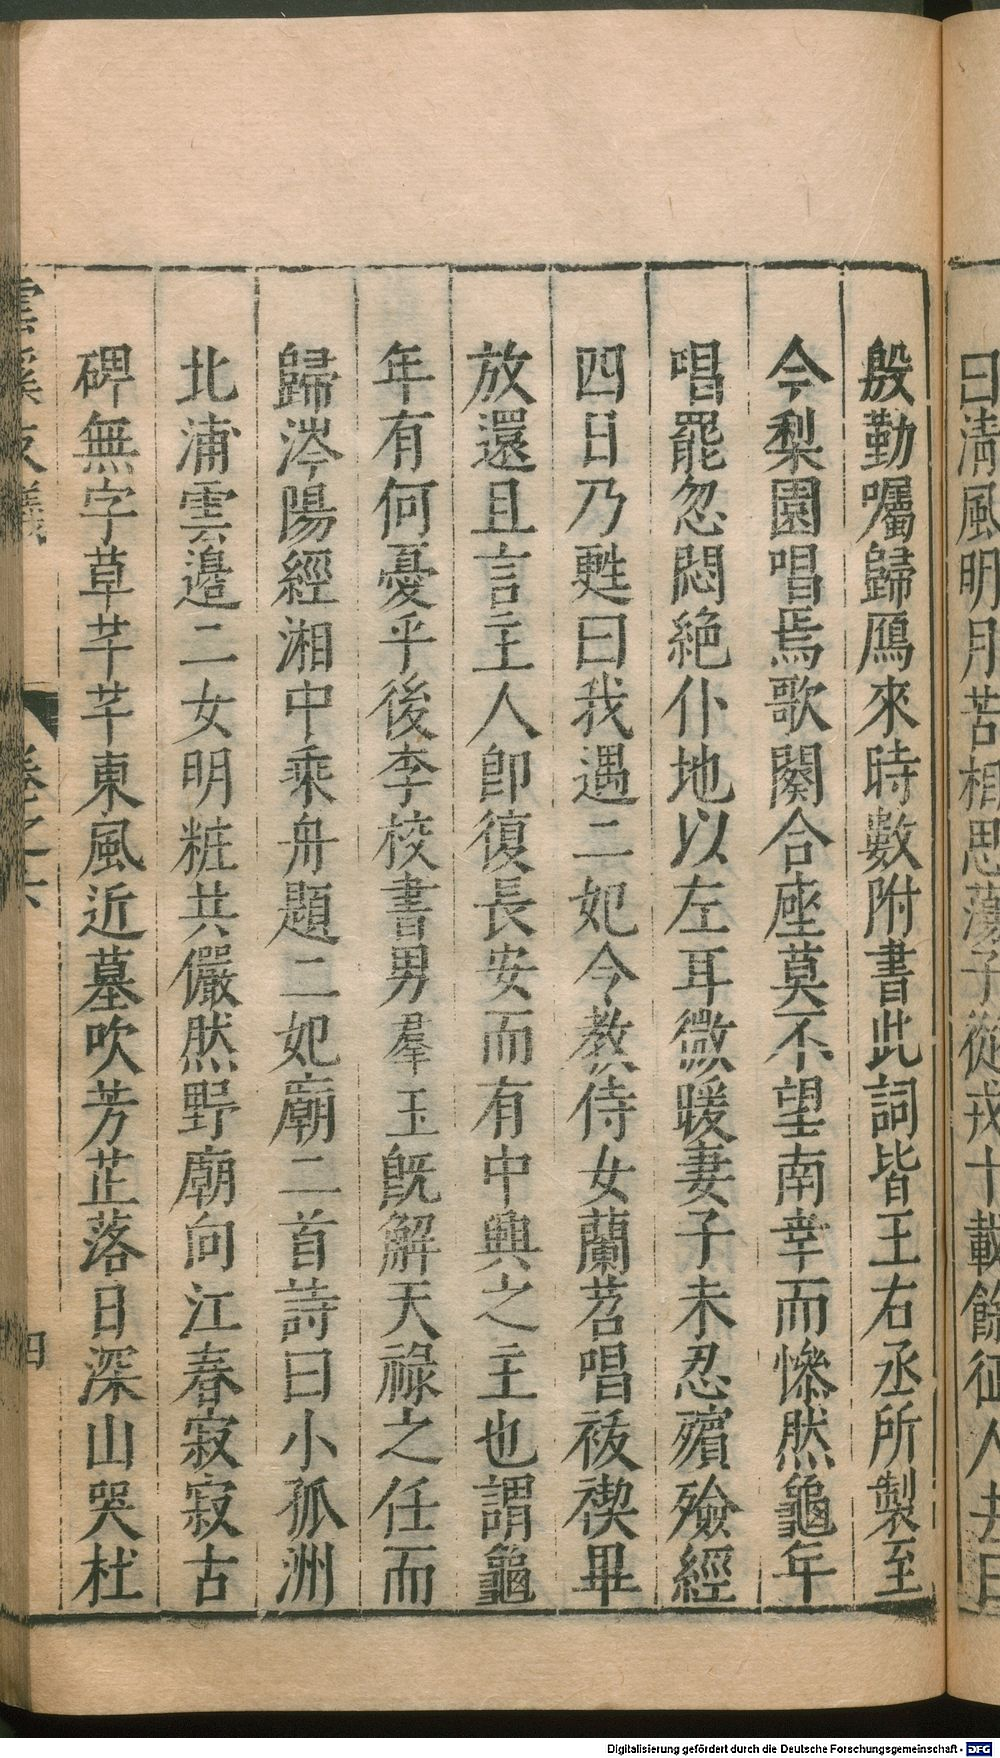 曰清風明月苦相思蕩子從戎十載餘征人去日
殷勤囑歸鴈來時數附書此詞皆王右丞所製至
今梨園唱焉歌闋合座莫不望南幸而慘然龜年
唱罷忽悶絶仆地以左耳微暖妻子未忍殯殮經
四日乃甦曰我遇二妃令教侍女蘭苕唱祓禊畢
放還且言主人卽復長安而有中興之主也謂龜
年有何憂乎後李校書男羣玉旣解天祿之任而
歸涔陽經湘中乘舟題二妃廟二首詩曰小孤洲
北浦雲邉二女明粧共儼然野廟向江春寂寂古
碑無字草芊芊東風近墓吹芳芷落日深山哭杜
雲溪友議 卷之六 四
Digitalisierung gefördert durch die Deutsche Forschungsgemeinschaft - DFG